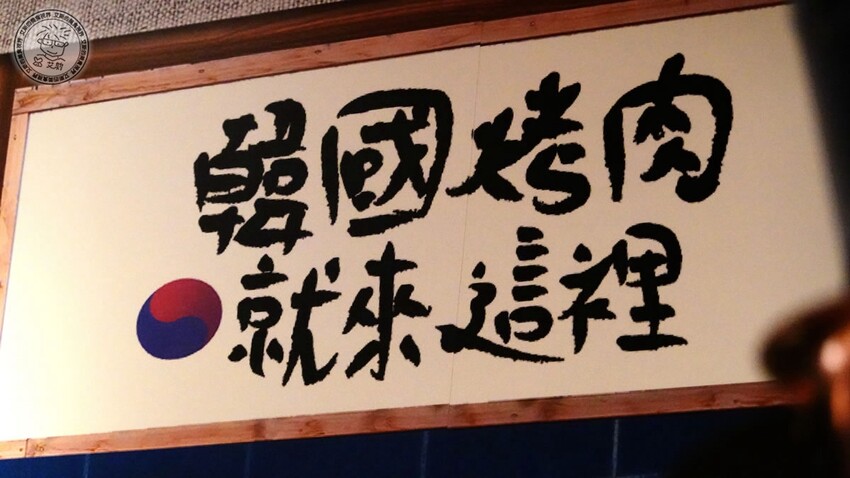 韓國烤肉
就來這裡